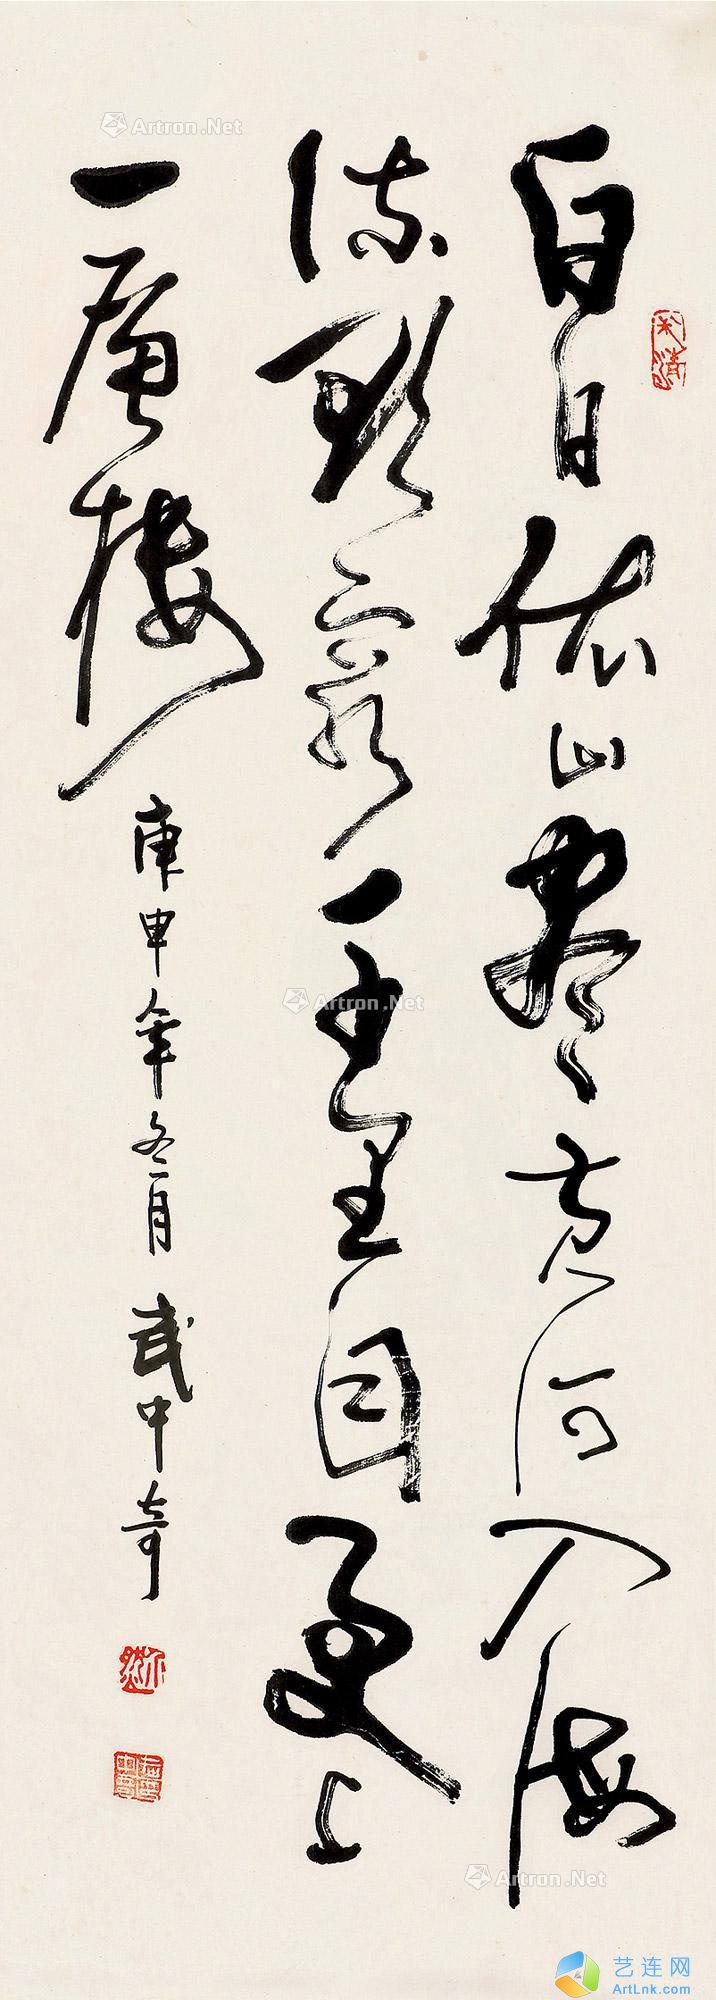 白日依山尽黄河入海
流欲穷一千里目更上
一层楼
庚申年冬月 武中奇
Artron.Net
Artron.Net
Artron.Net
艺连网
ArtLnk.com